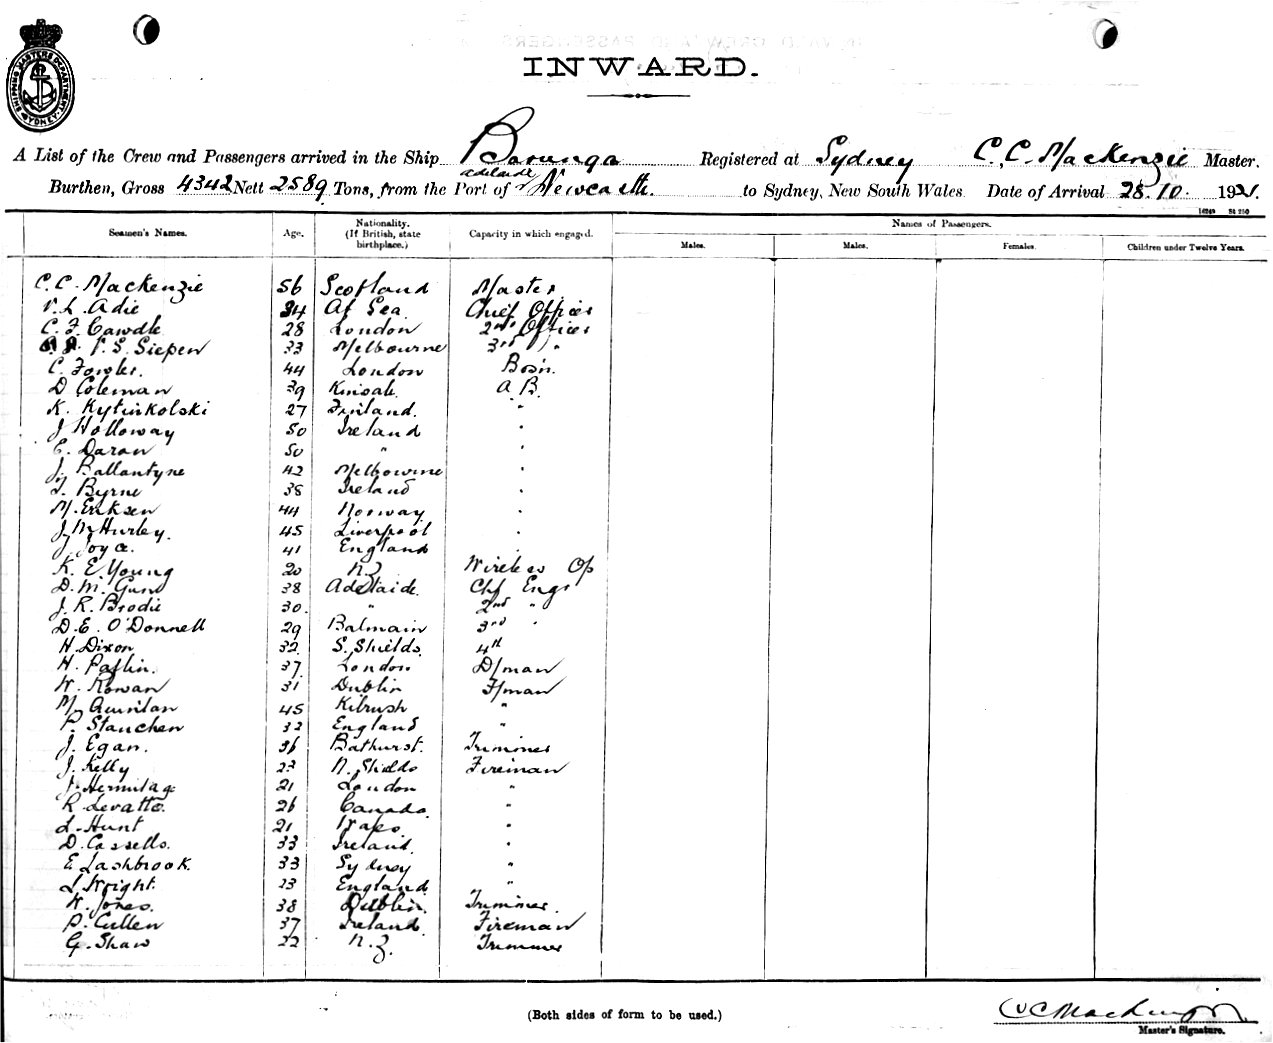 SHIPPING MASTERS DEPARTMENT SYDNEY
INWARD.
A List of the Crew and Passengers arrived in the Ship Barunga Registered at Sydney C. C. Mackenzie Master.
Adelaide
Burthen, Gross 4342 Nett 2589 Tons, from the Port of Newcastle. to Sydney, New South Wales. Date of Arrival 28.10. 1921.
Seamen's Names. Age. Nationality. (If British, state birthplace.) Capacity in which engaged. Names of Passengers.
Males. Males. Females. Children under Twelve Years.
C. C. Mackenzie 56 Scotland Master
V. L. Adie 34 At Sea Chief Officer
C. F. Cawdle 28 London 2nd Officer
V. S. Siepen 33 Melbourne 3rd "
C. Fowler. 44 London Bosn.
D Coleman 39 Kinsale A. B.
K. Kyturkolski 27 Finland. "
J Holloway 50 Ireland "
E. Daran 50 " "
J. Ballantyne 42 Melbourne "
T. Byrne 38 Ireland "
M. Eriksen 44 Norway "
J McHurley. 45 Liverpool "
J Joyce. 41 England "
K. E Young 20 NZ Wireless Op
D. M. Gunn 38 Adelaide. Chf Engr
J. R. Brodie 30. " 2nd "
D. E. O'Donnell 29 Balmain 3rd "
H. Dixon 32 S. Shields 4th
H. Paflin. 37 London D/man
W. Rowan 31 Dublin F/man
M Quinlan 45 Kilrush "
P. Stauchen 32 England "
J. Egan. 36 Bathurst. Trimmer
J. Kelly 23 N. Shields Fireman
J Hermitage 21 London "
R. Levatte. 26 Canada "
L. Hunt 21 "
D. Cassells. 33 Ireland. "
E Lashbrook. 33 Sydney "
L Wright. 23 England "
W. Jones. 38 Dublin. Trimmer.
P. Cullen 37 Ireland Fireman
G. Shaw 22 N.Z. Trimmer
(Both sides of form to be used.)
C C Mackenzie
Master's Signature.